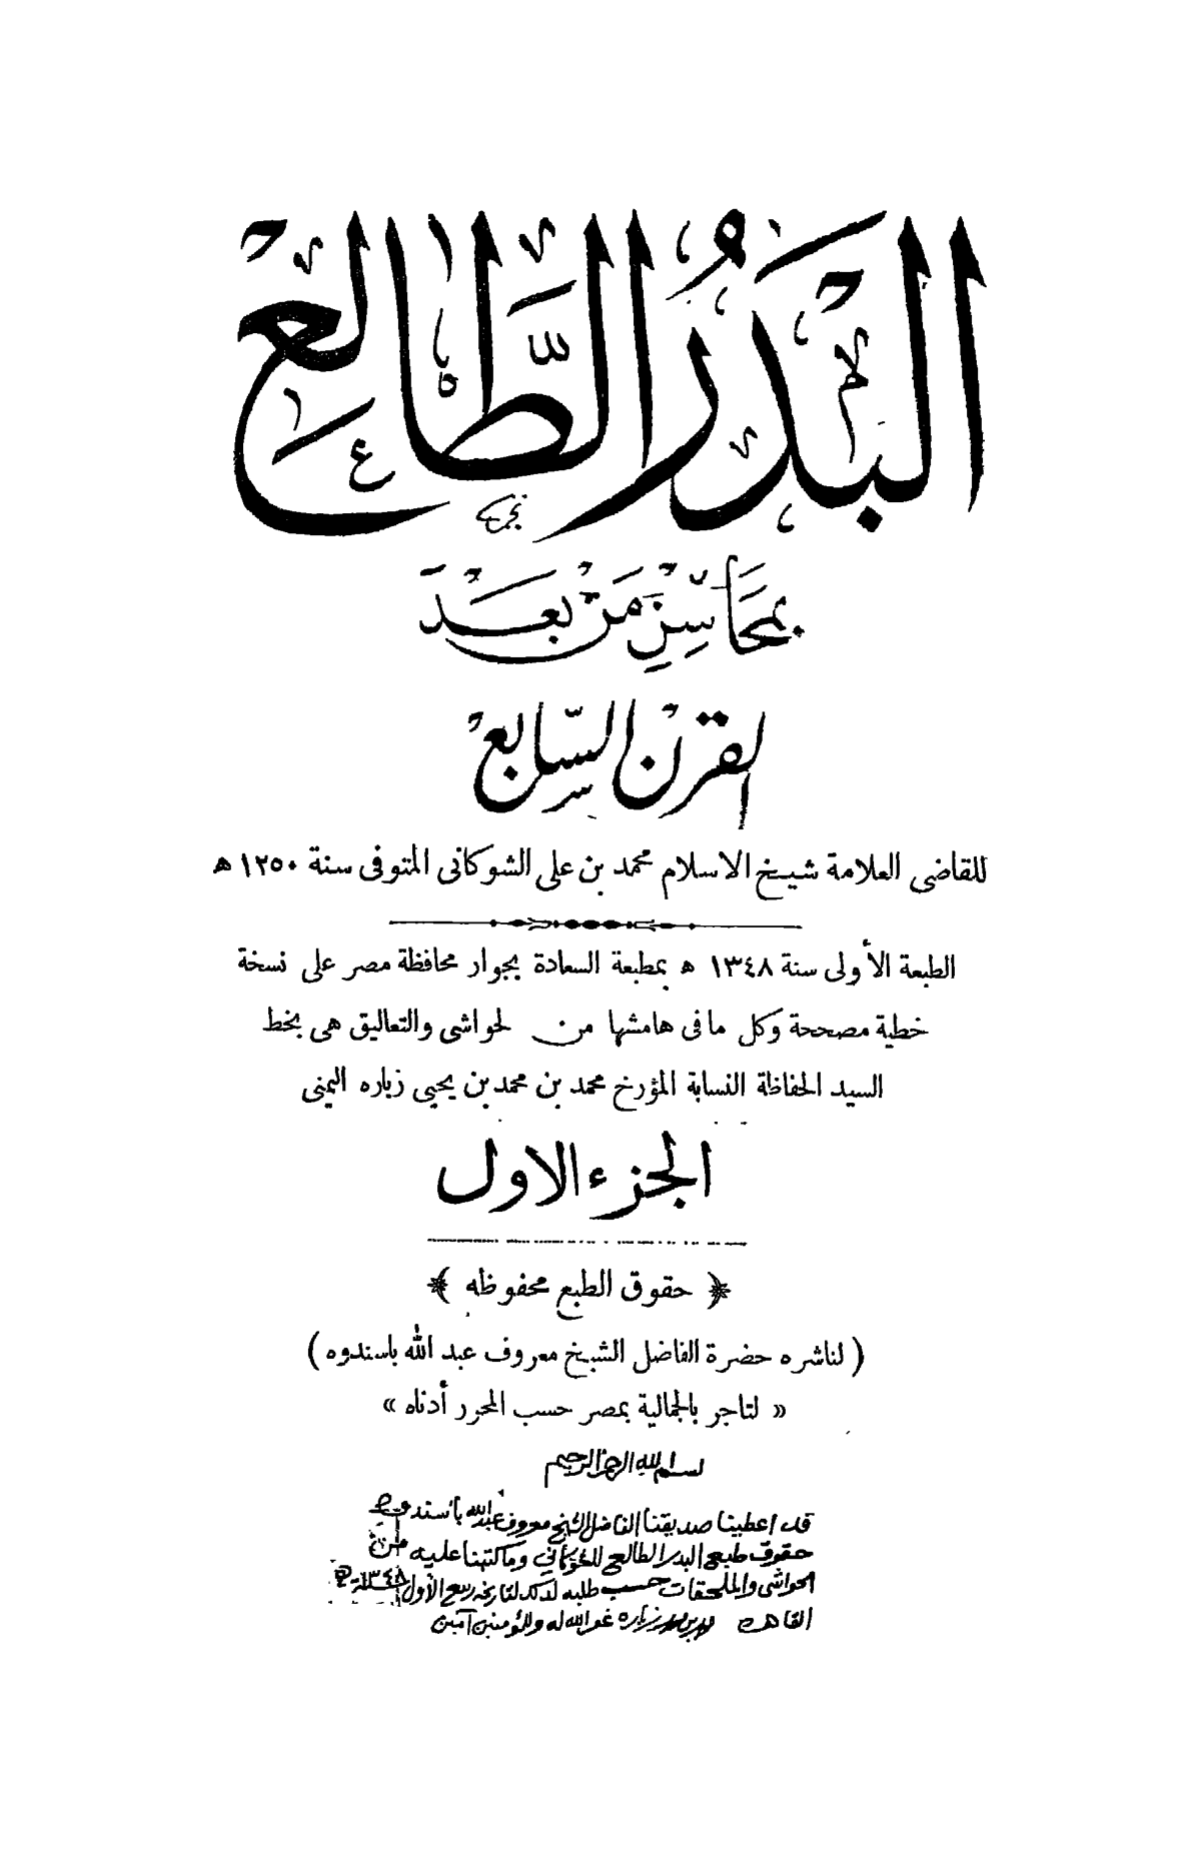 البَدْرُ الطَّالِعْ
بمَحَاسِنِ مَنْ بَعْدَ
القرنْ السَّابِعْ
للقاضى العلامة شيخ الاسلام محمد بن على الشوكانى المتوفى سنة ١٢٥٠ ه
الطبعة الأولى سنة ١٣٤٨ ه بمطبعة السعادة بجوار محافظة مصر على نسخة
خطية مصححة وكل ما فى هامشها من لحواشى والتعاليق هى بخط
السيد الحفاظة النسابة المؤرخ محمد بن محمد بن يحيى زباره اليمنى
الجزء الاول
﴿ حقوق الطبع محفوظه ﴾
( لناشره حضرة الفاضل الشيخ معروف عبد الله باسندوه )
« لتاجر بالجمالية بمصر حسب المحرر أدناه »
بسم الله الرحمن الرحيم
قد اعطينا صديقنا الفاضل الشيخ معروف عبد الله باسندوه
حقوق طبع البدر الطالع للشوكاني وما كتبنا عليه من
الحواشي والملحقات حسب طلبه لذلك لتاريخه ربيع الأول سنة ١٣٤٨ ه
القاهره محمد بن محمد زباره غفر الله له وللمؤمنين آمين